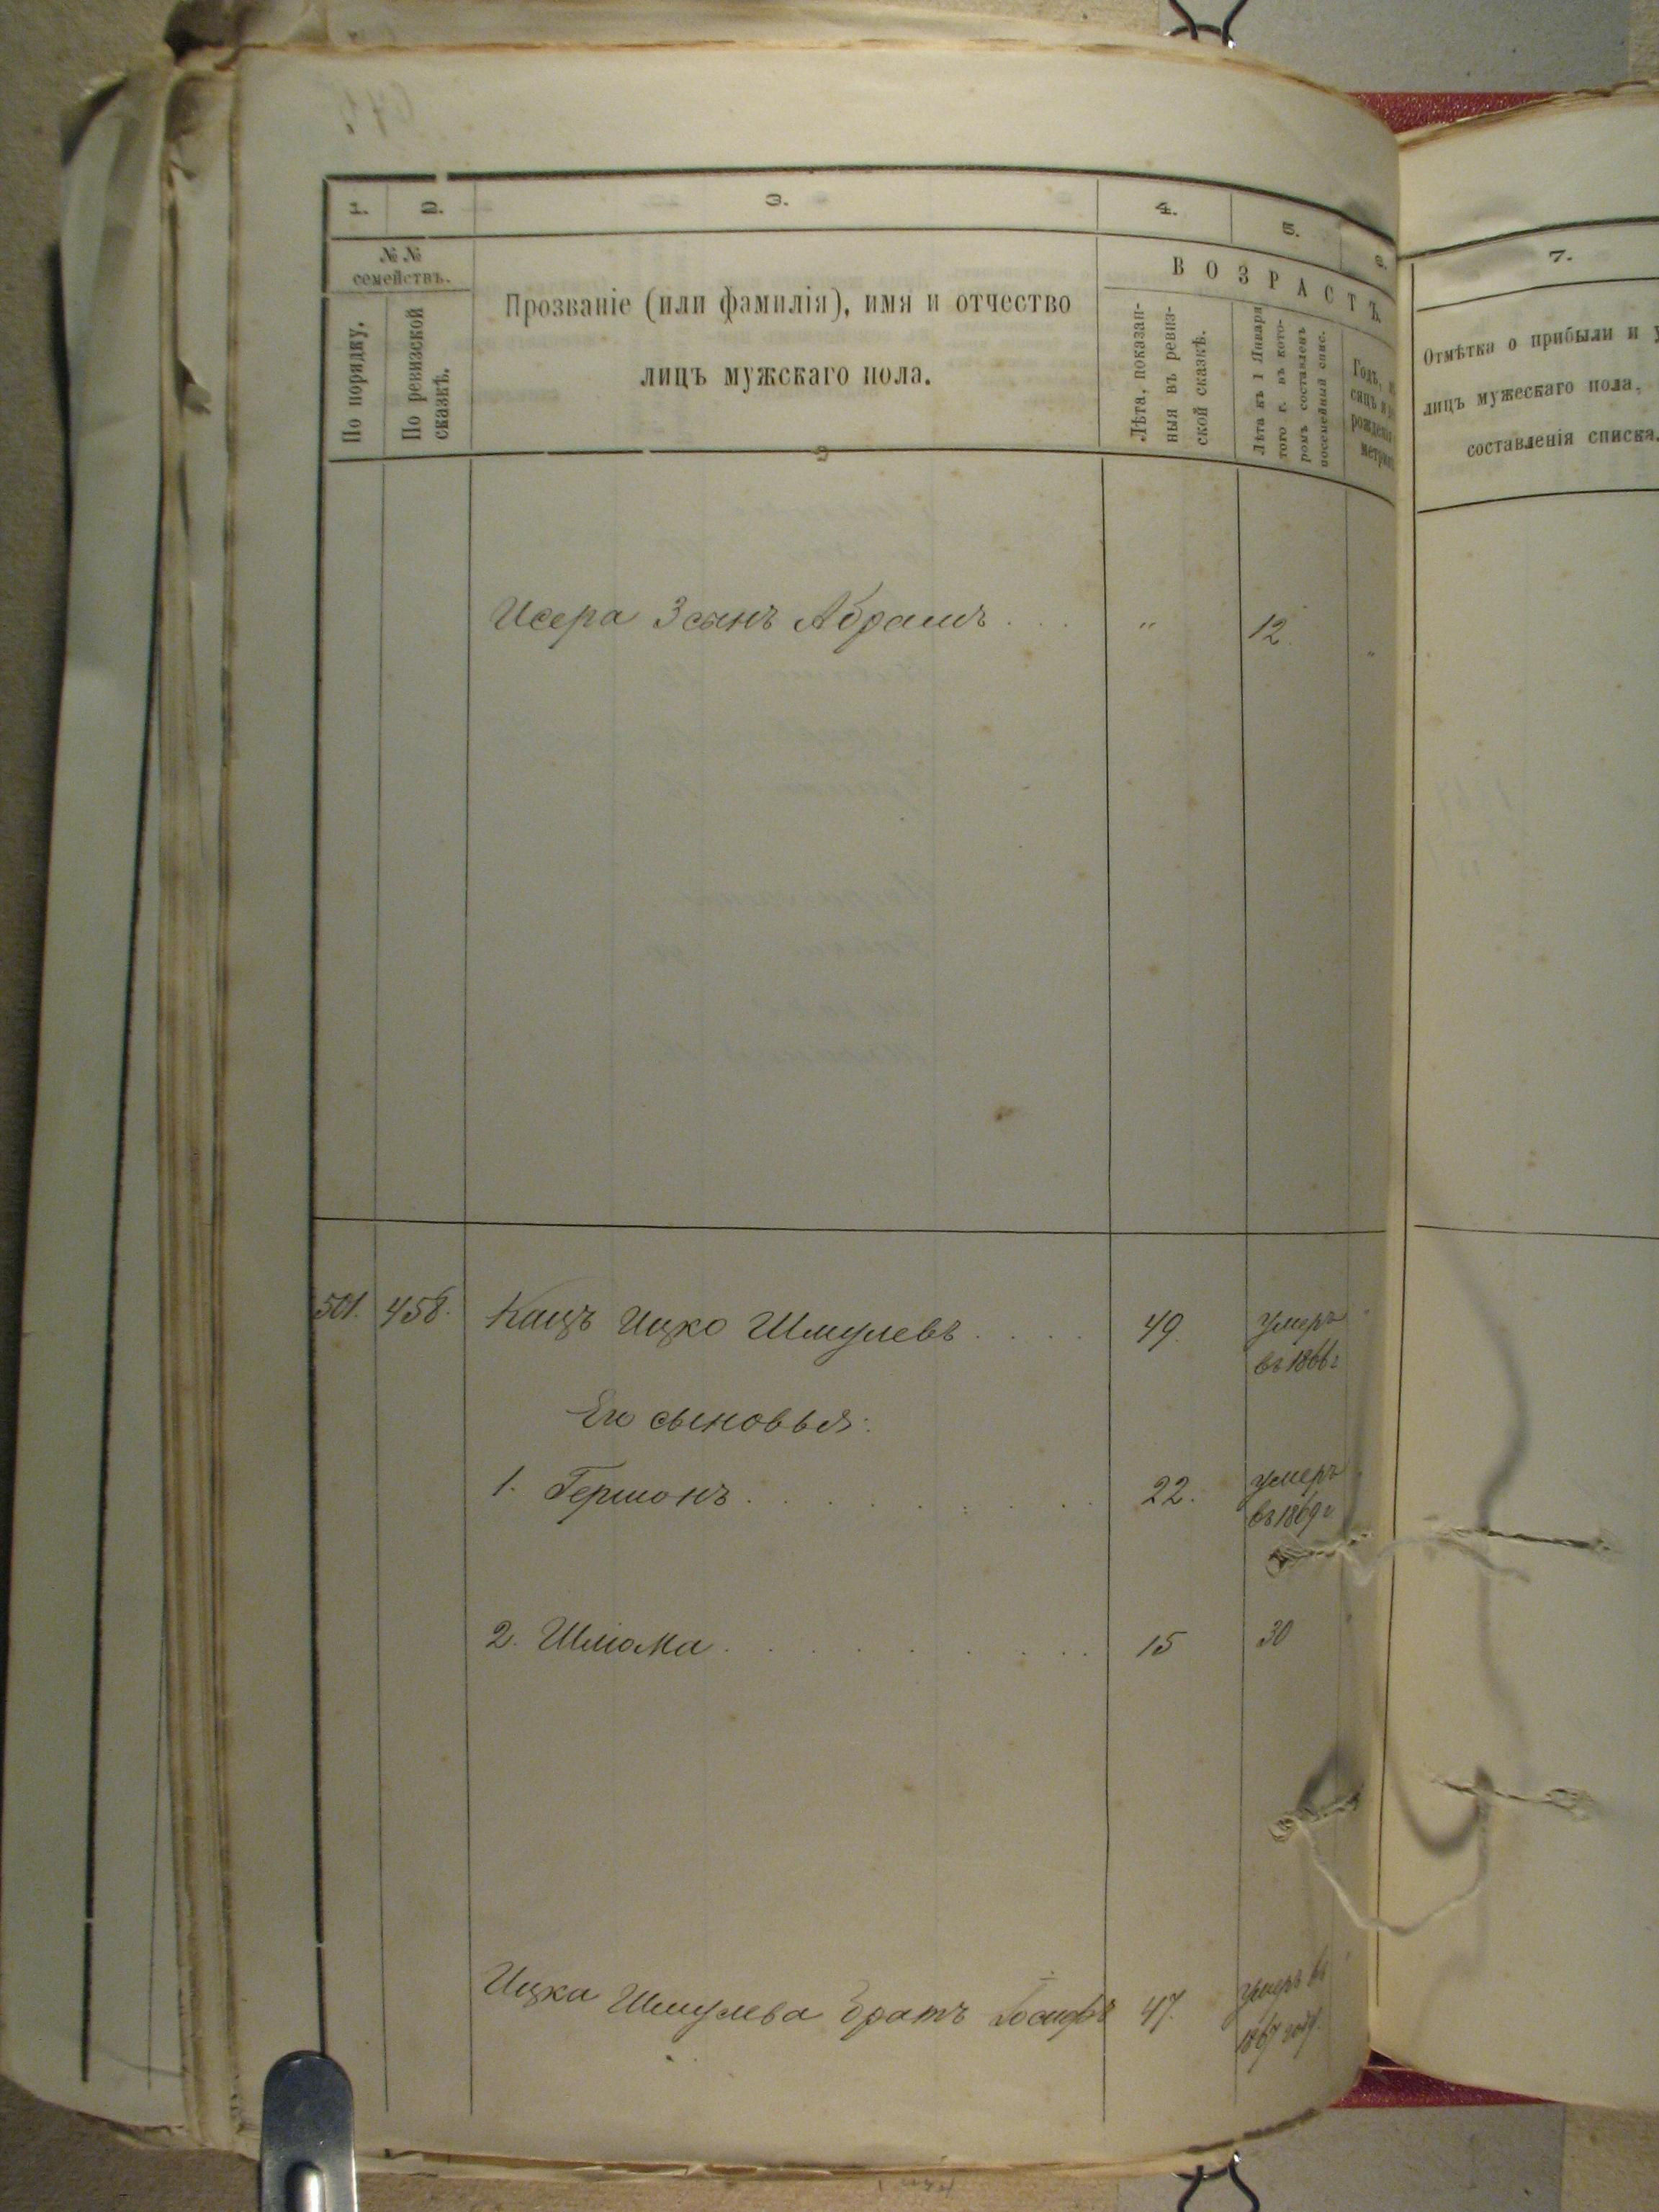 1. 2. 3. 4. 5. 6.
№ № семействъ.
По порядку.
По ревизской сказкѣ.
Прозваніе (или фамилія), имя и отчество
лицъ мужскаго пола.
ВОЗРАСТЪ.
Лѣта, показан-
ныя въ ревиз-
ской сказкѣ.
Лѣта къ 1 Января
того г. въ кото-
ромъ составленъ
посемейный спис.
Годъ,
рожденія
7.
Отмѣтка о прибыли и
лицъ мужескаго пола,
составленія списка.
Исера 3 сынъ Абрамъ . . . " 12. "
501. 458. Кацъ Ицко Шмулевъ . . . . 49. умеръ
въ 1866 г
Его сыновья:
1. Гершонъ . . . . . . . . . 22. умеръ
въ 1869 г
2. Шліома . . . . . . . . 15 30
Ицка Шмулева братъ Іосифъ 47. умеръ въ
1867 году.